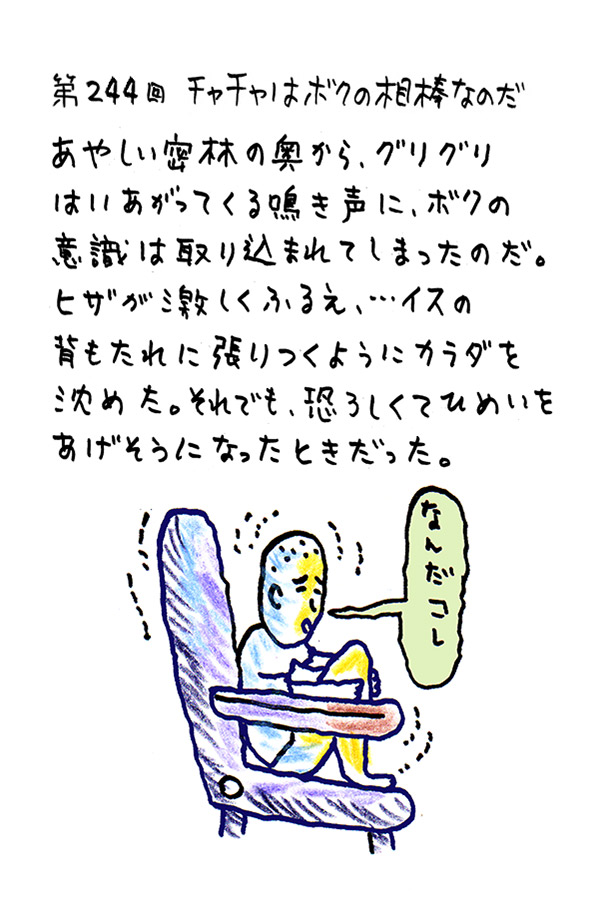 第244回 チャチャはボクの相棒なのだ
あやしい密林の奥から、グリグリ
はいあがってくる鳴き声に、ボクの
意識は取り込まれてしまったのだ。
ヒザが激しくふるえ、…イスの
背もたれに張りつくようにカラダを
沈めた。それでも、恐ろしくてひめいを
あげそうになったときだった。
なんだコレ